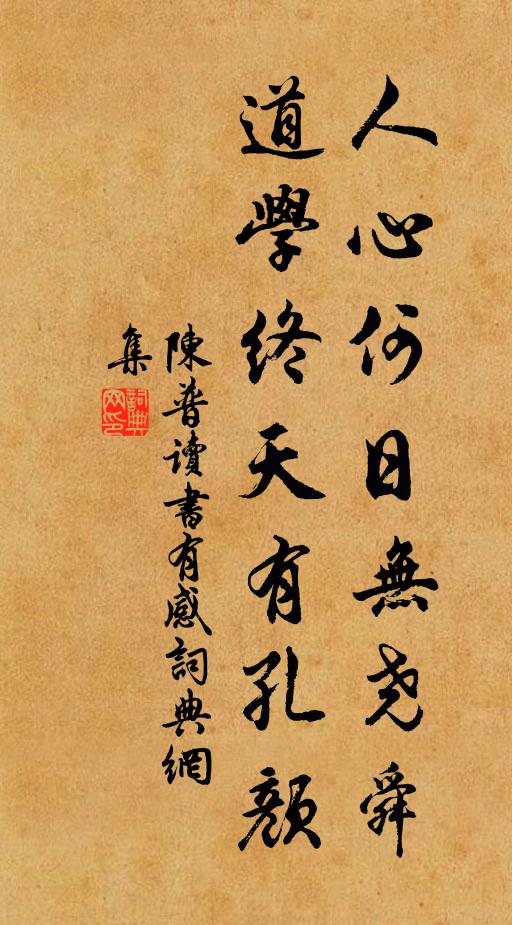 人心何日無尧舜
道學終天有孔顏
陳普讀書有感詞典網
集
詞典
网印